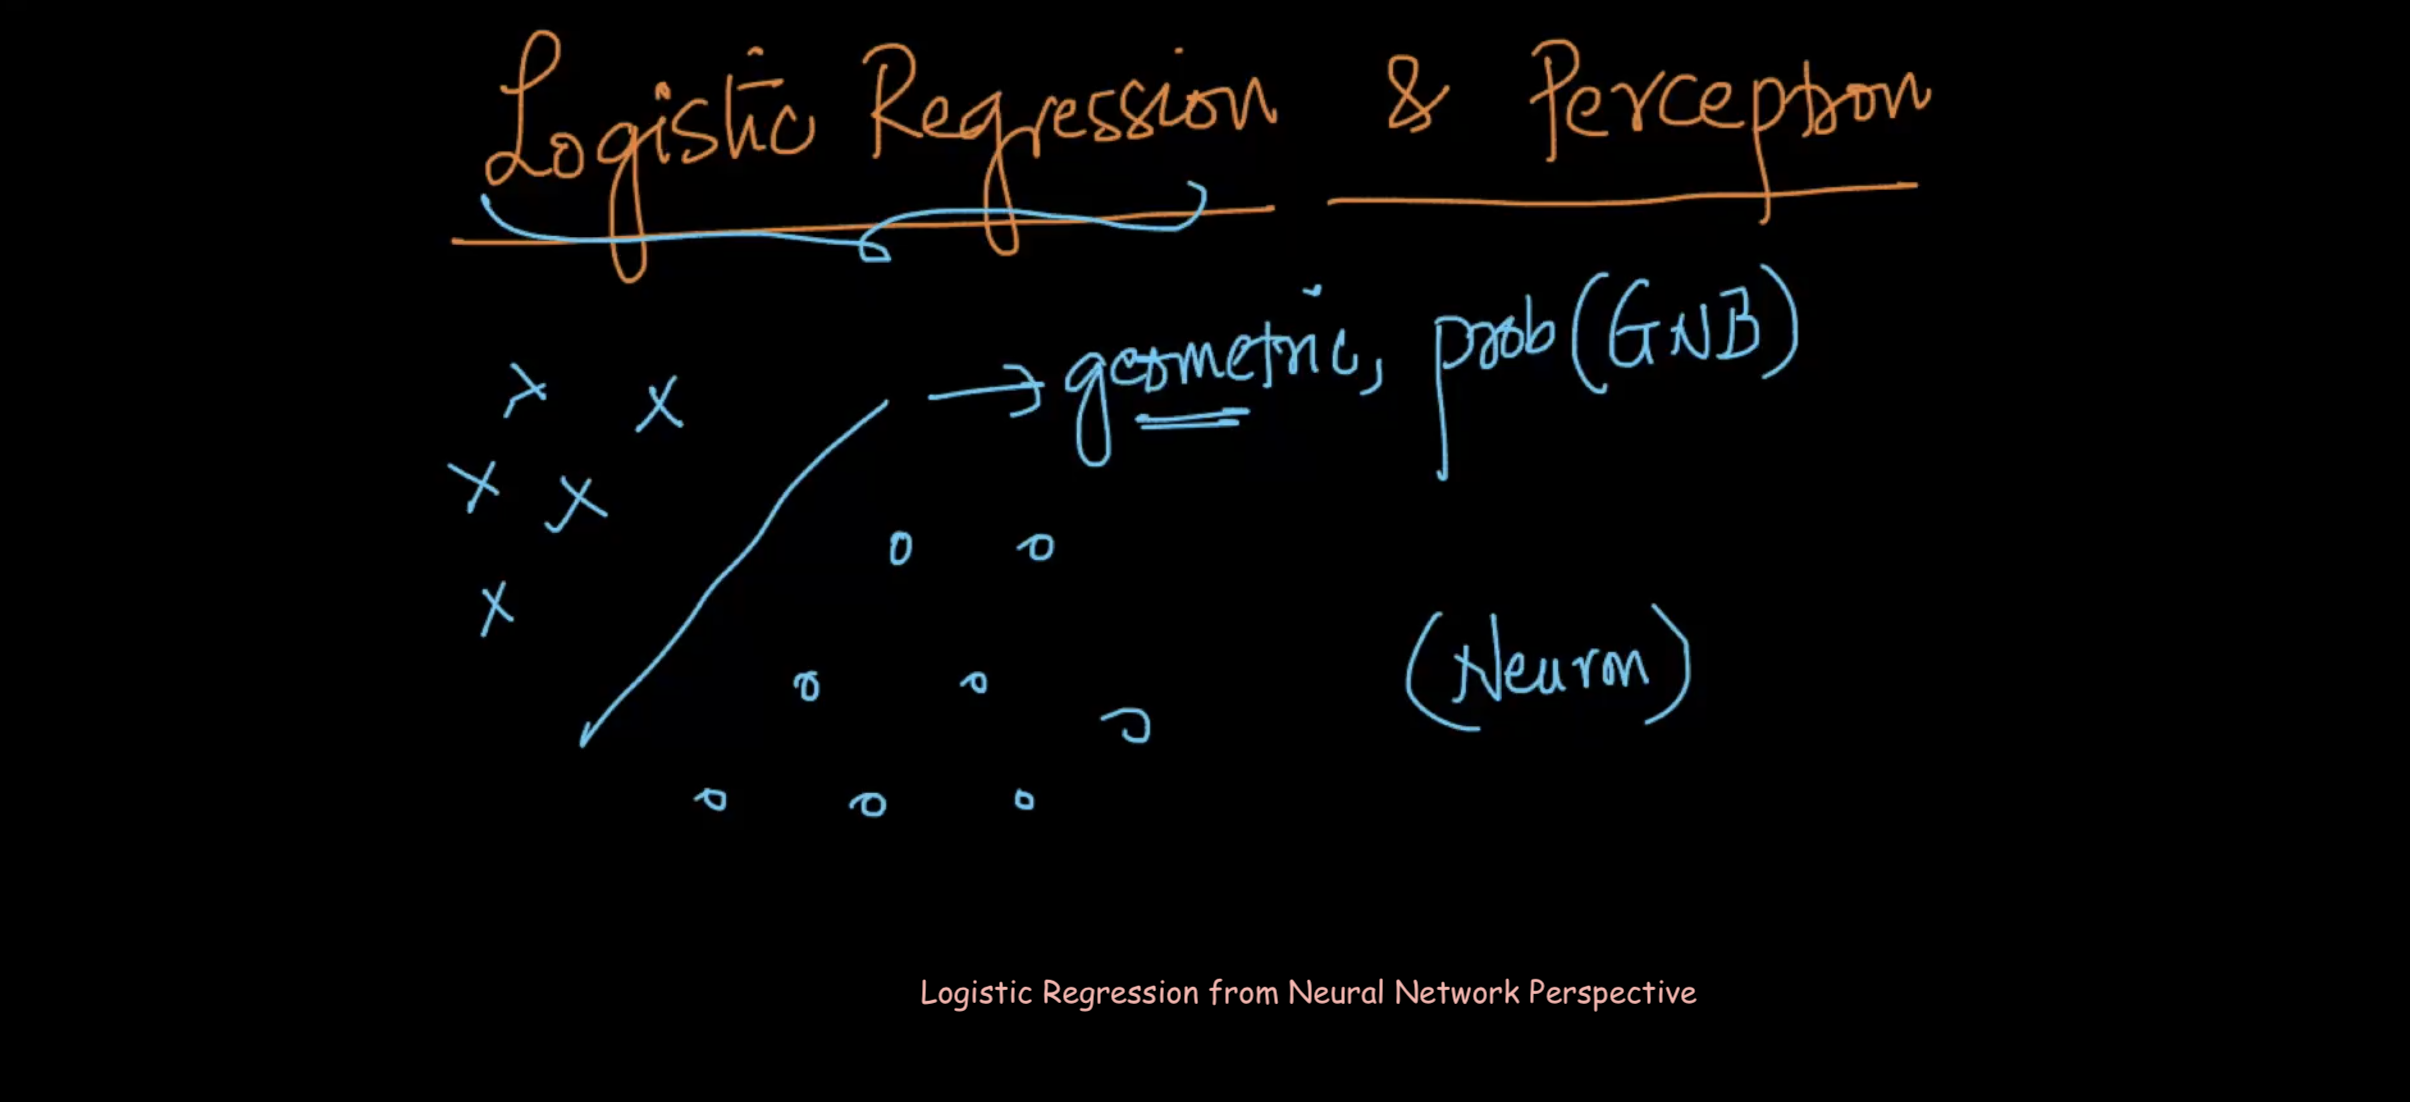 Logistic Regression & Perceptron
→ geometric, prob (GNB)
(Neuron)
Logistic Regression from Neural Network Perspective